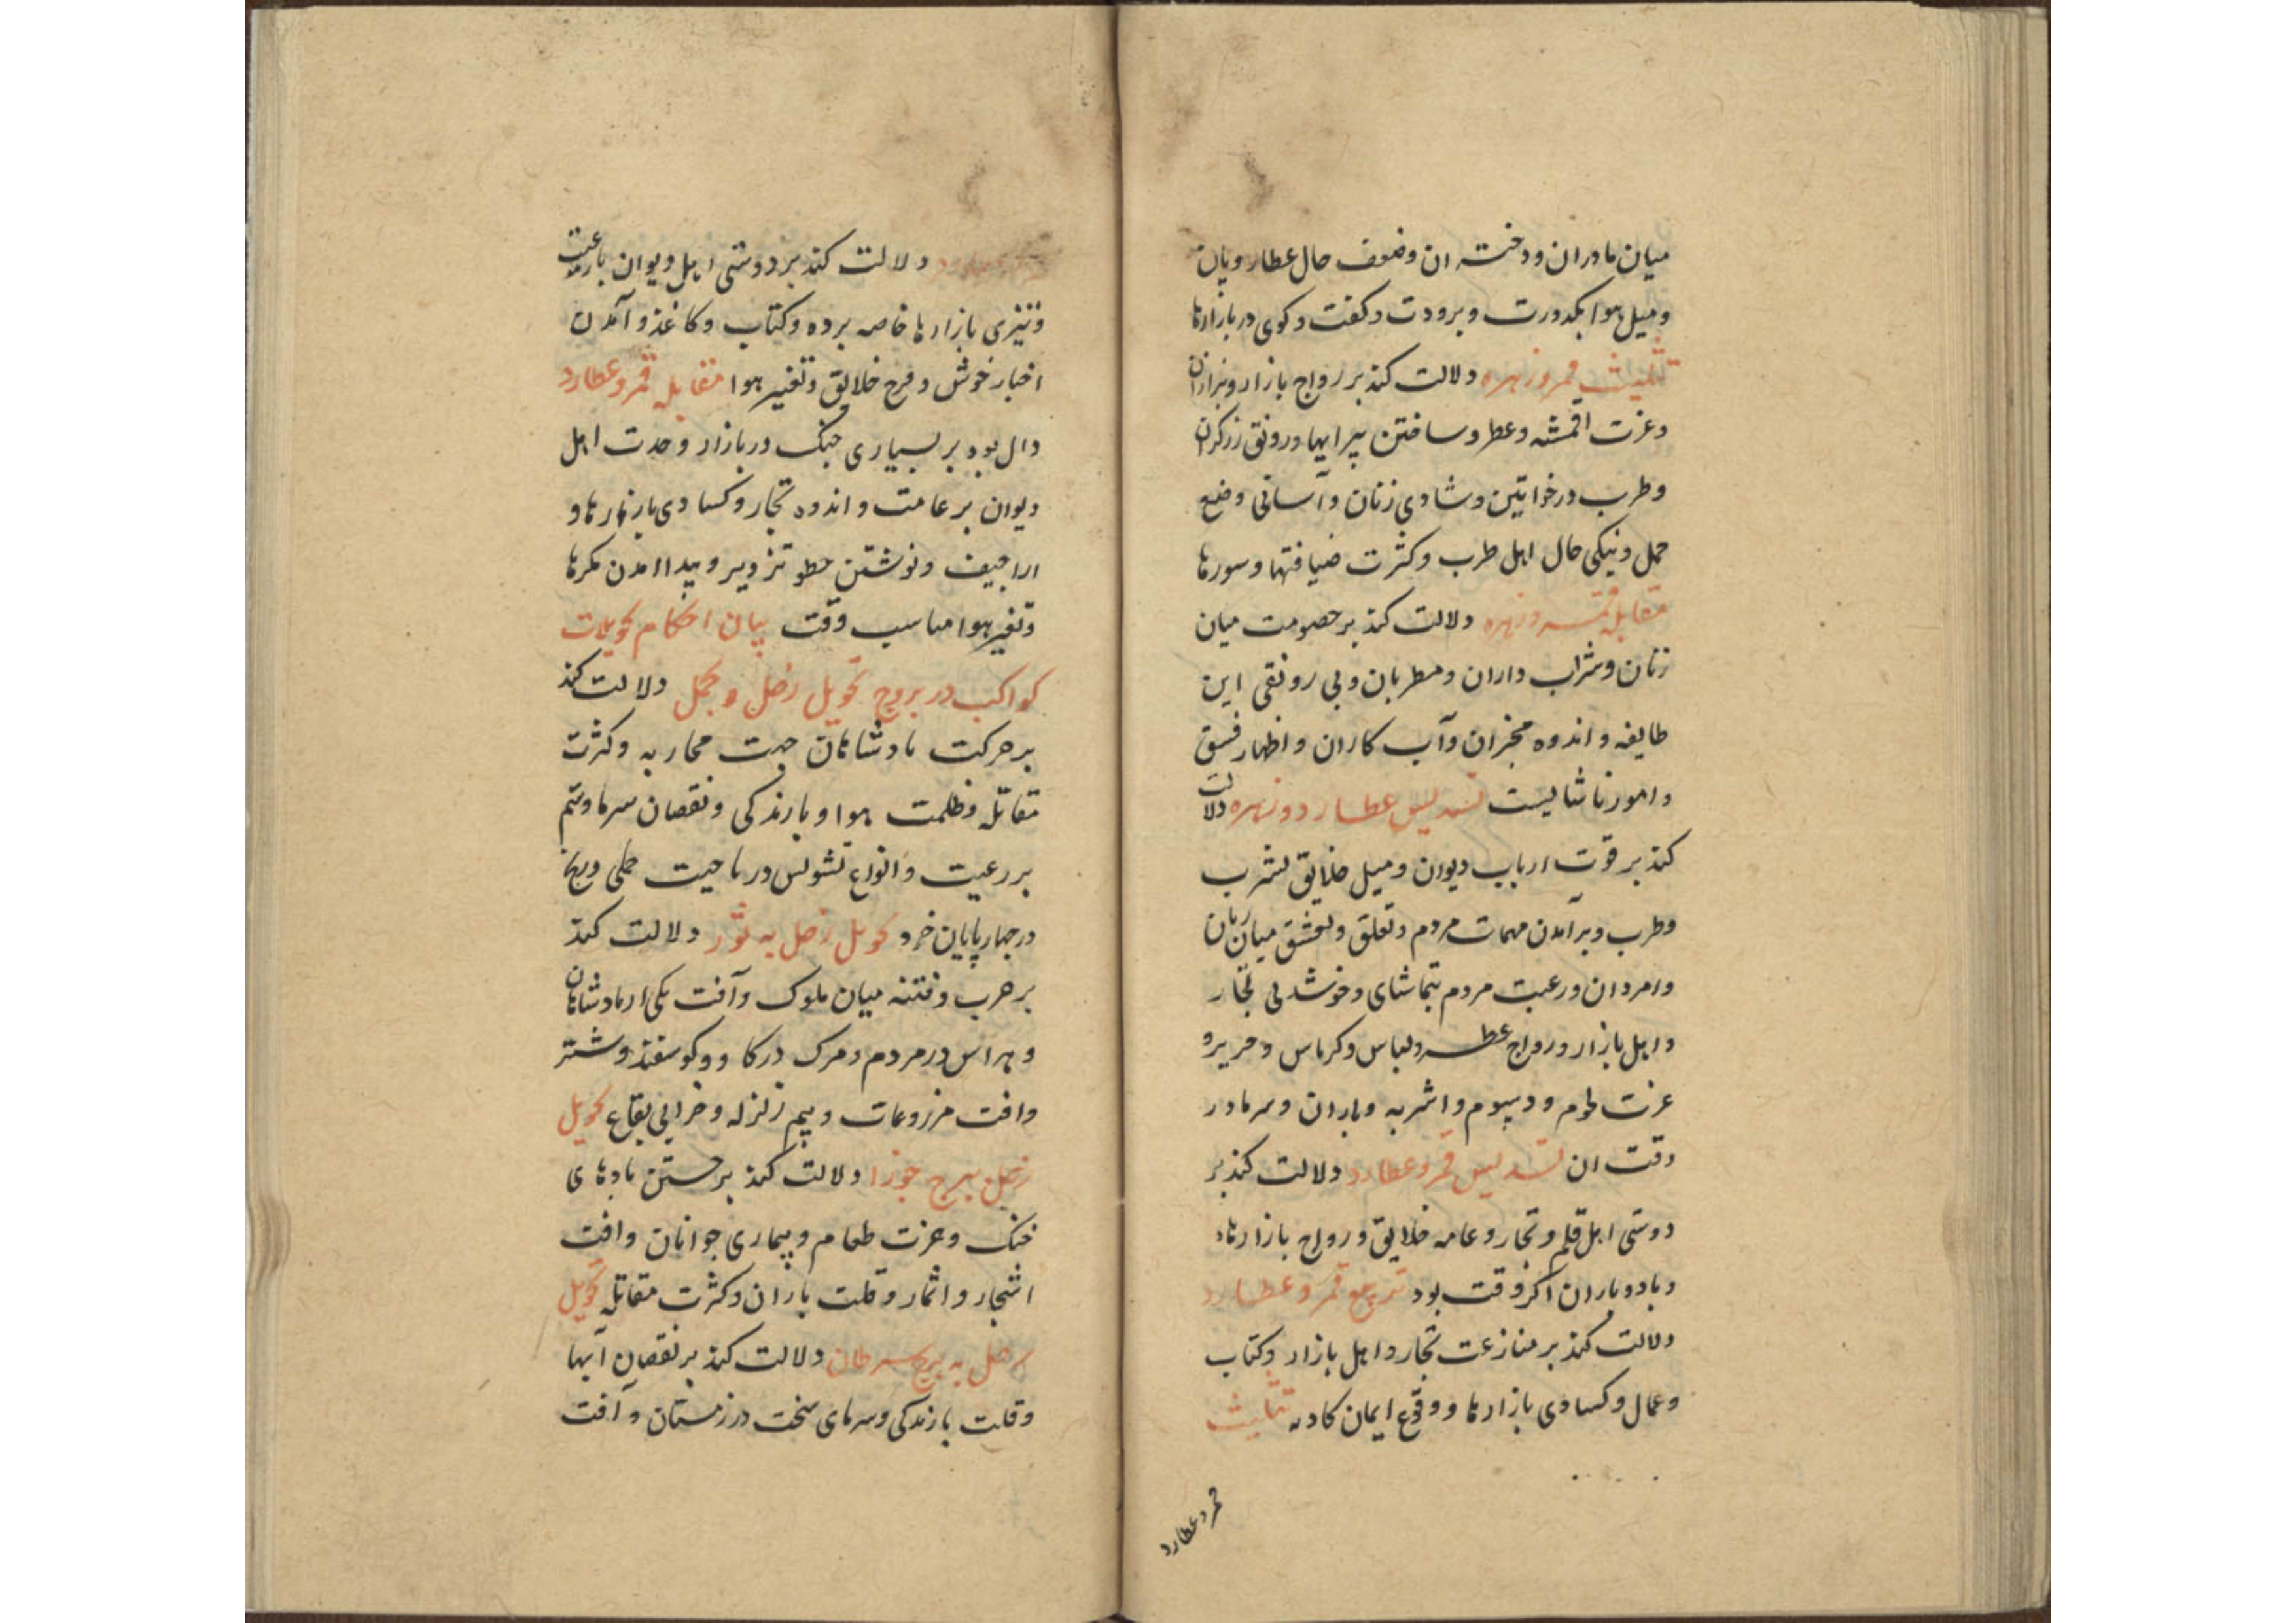 میان مادران و دختران و ضعف حال عطارویان
و میل هوا بکدورت و برودت و کفت و کوی در بازارها
تثلیث قمر و زهره دلالت کند بر رواج بازار و بزازان
و عزت اقمشه و عطر و ساختن پیرایها و رونق زرکران
و طرب در خواتین و شادی زنان و آسانی وضع
حمل و نیکی حال اهل طرب و کثرت ضیافتها و سورها
مقابله قمر و زهره دلالت کند بر خصومت میان
زنان و شراب داران و مطربان و بی رونقی این
طایفه و اندوه مخبران و آب کاران و اظهار فسق
و امور ناشایست تسدیس عطارد و زهره دلالت
کند بر قوت ارباب دیوان و میل خلایق بشرب
و طرب و برآمدن مهمات مردم و تعلق و تعشق میان زنان
و امردان و رغبت مردم بتماشای و خوشدلی تجار
و اهل بازار و رواج عطر و لباس و کرباس و حریر و
عزت لحوم و دسوم و اشربه و باران و سرما در
وقت ان تسدیس قمر و عطارد دلالت کند بر
دوستی اهل قلم و تجار و عامه خلایق و رواج بازارها
و باد و باران اکر وقت بود تربیع قمر و عطارد
دلالت کند بر منازعت تجار و اهل بازار و کتاب
و عمال و کسادی بازارها و وقوع ایمان کاذبه تثلیث
قمر و عطارد
دلالت کند بر دوستی اهل دیوان با رعیت
و تیزی بازارها خاصه برده و کتاب و کاغذ و آمدن
اخبار خوش و فرح خلایق و تغییر هوا مقابله قمر و عطارد
دال بود بر بسیاری جنک در بازار و حدت اهل
دیوان بر عامت و اندوه تجار و کسادی بازارها و
اراجیف و نوشتن خطو تزویر و پیدا امدن مکرها
و تغیر هوا مناسب وقت بیان احکام تحویلات
کواکب در بروج تحویل زحل بحمل دلالت کند
بر حرکت بادشاهان جهت محاربه و کثرت
مقاتله و ظلمت هوا و بارندکی و نقصان سرما و ستم
بر رعیت و انواع تشویش در ناحیت جملی و رنج
در چهارپایان خرد تحویل زحل به ثور دلالت کند
بر حرب و فتنه میان ملوک و آفت یکی از بادشاهان
و هراس در مردم و مرک در کاو و کوسفند و شتر
و افت مزروعات و بیم زلزله و خرابی بقاع تحویل
زحل ببرج جوزا دلالت کند بر جستن بادهای
خنک و عزت طعام و بیماری جوانان و افت
اشجار و اثمار و قلت باران و کثرت مقاتله تحویل
زحل به برج سرطان دلالت کند بر نقصان آبها
و قلت بارندکی و سرمای سخت در زمستان و آفت